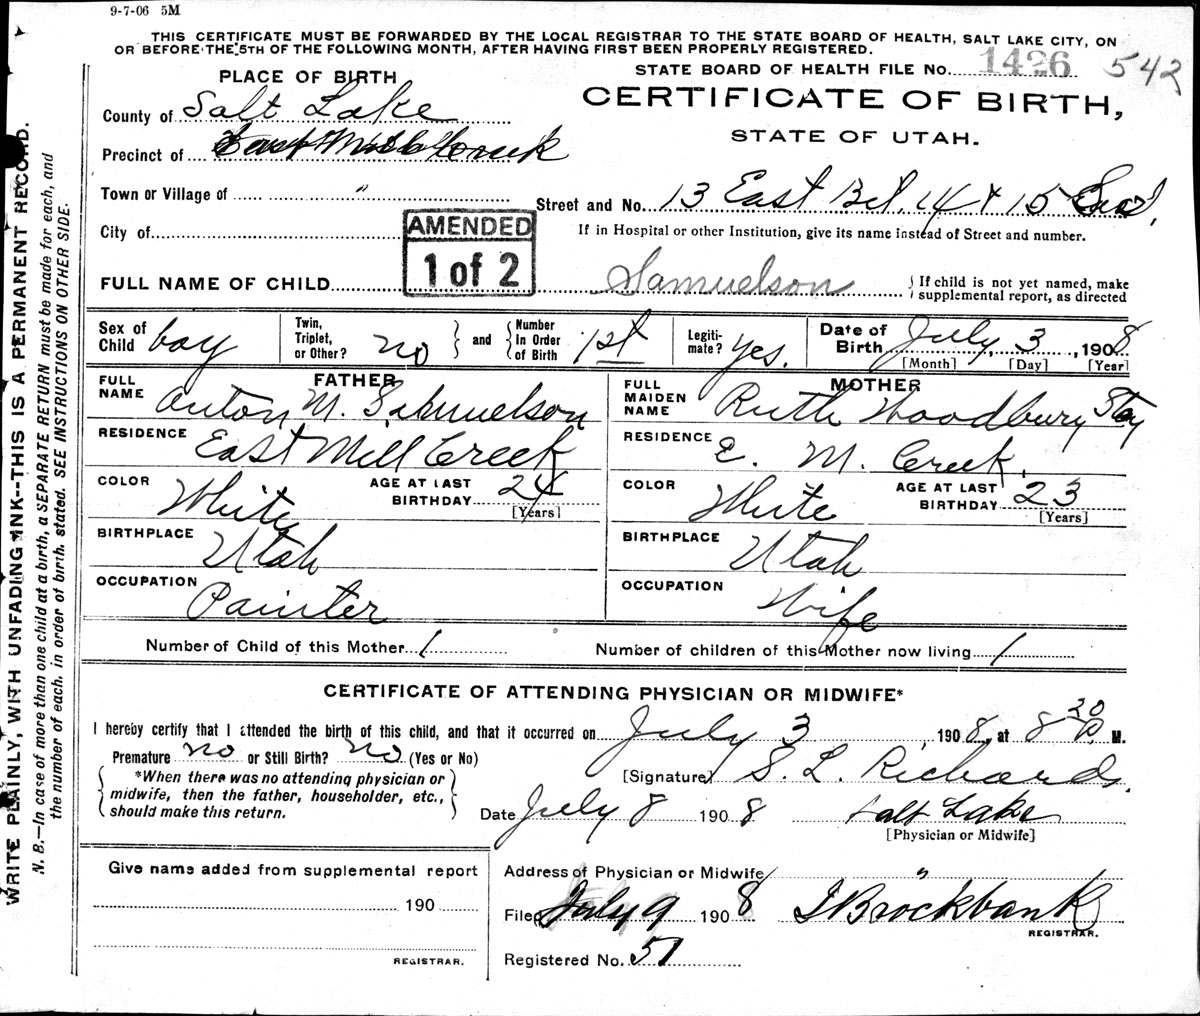 9-7-06 5M
THIS CERTIFICATE MUST BE FORWARDED BY THE LOCAL REGISTRAR TO THE STATE BOARD OF HEALTH, SALT LAKE CITY, ON
OR BEFORE THE 5TH OF THE FOLLOWING MONTH, AFTER HAVING FIRST BEEN PROPERLY REGISTERED.
STATE BOARD OF HEALTH FILE No. 1426 542
PLACE OF BIRTH
CERTIFICATE OF BIRTH,
STATE OF UTAH.
County of Salt Lake
Precinct of East Mill Creek
Town or Village of "
Street and No. 13 East Bet. 14 & 15 
City of
If in Hospital or other Institution, give its name instead of Street and number.
AMENDED
1 of 2
FULL NAME OF CHILD Samuelson
If child is not yet named, make
supplemental report, as directed
Sex of Child boy
Twin, Triplet, or Other? no and Number In Order of Birth 1st
Legiti-mate? yes.
Date of Birth July 3, 1908
[Month] [Day] [Year]
FATHER
FULL NAME Anton M. Samuelson
RESIDENCE East Mill Creek
COLOR White AGE AT LAST BIRTHDAY 24
[Years]
BIRTHPLACE Utah
OCCUPATION Painter
MOTHER
FULL MAIDEN NAME Ruth Woodbury Stay
RESIDENCE E. M. Creek,
COLOR White AGE AT LAST BIRTHDAY 23
[Years]
BIRTHPLACE Utah
OCCUPATION Wife
Number of Child of this Mother 1 Number of children of this Mother now living 1
CERTIFICATE OF ATTENDING PHYSICIAN OR MIDWIFE*
I hereby certify that I attended the birth of this child, and that it occurred on July 3, 1908, at 8 30 P. M.
Premature no or Still Birth? no (Yes or No)
[Signature] S. L. Richards.
*When there was no attending physician or
midwife, then the father, householder, etc.,
should make this return.
Date July 8 1908 Salt Lake
[Physician or Midwife]
Give name added from supplemental report
190
REGISTRAR.
Address of Physician or Midwife "
Filed July 9 1908 Brockbank
REGISTRAR.
Registered No. 51
WRITE PLAINLY, WITH UNFADING INK--THIS IS A PERMANENT RECORD.
N. B.—In case of more than one child at a birth, a SEPARATE RETURN must be made for each, and
the number of each, in order of birth, stated. SEE INSTRUCTIONS ON OTHER SIDE.